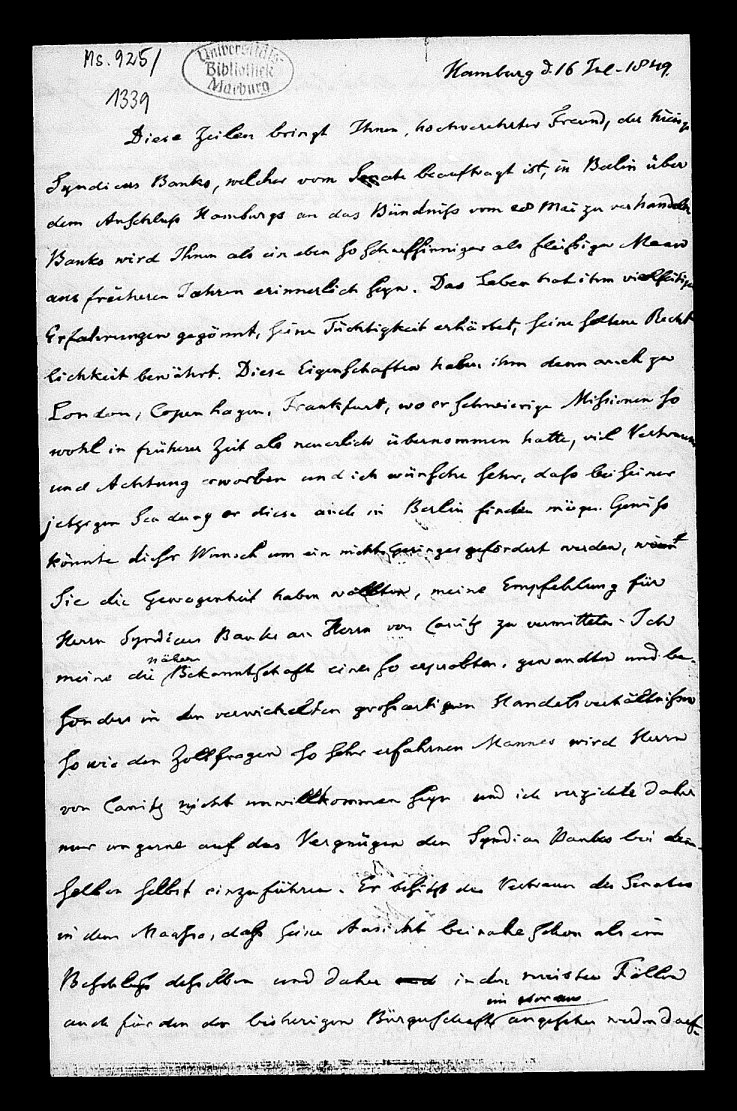 Ms. 925/
1339
Universitäts-
Bibliothek
Marburg
Hamburg d. 16 Jul. 1849.
Diese Zeilen bringt Ihnen, hochverehrter Freund, der
Syndicus Banks, welcher vom Senate beauftragt ist, in Berlin über
dem Anschluß Hamburgs an das Bündniß vom 28 Mai zu verhandeln
Banks wird Ihnen als ein eben so scharfsinniger als fleißiger Mann
aus früheren Jahren erinnerlich seyn. Das Leben hat ihm vielseitige
Erfahrungen gegönnt, seine Tüchtigkeit erhärtet, seine seltene Recht
lichkeit bewährt. Diese Eigenschaften haben ihm denn auch zu
London, Copenhagen, Frankfurt, wo er schwierige Missionen so
wohl in früherer Zeit als neuerlich übernommen hatte, viel Vertrauen
und Achtung erworben und ich wünsche sehr, daß bei seiner
jetzigen Sendung er diese auch in Berlin finden möge. Gewiß
könnte dieser Wunsch um ein nicht Geringes gefördert werden, wenn
Sie die Gewogenheit haben wollten, meine Empfehlung für
Herrn Syndicus Banks an Herrn von Canitz zu vermitteln. Ich
meine die nähere Bekanntschaft eines so erprobten, gewandten und be-
sonders in den verwickelten großartigen Handelsverhältnissen
so wie den Zollfragen so sehr erfahrnen Mannes wird Herrn
von Canitz nicht unwillkommen seyn und ich verzichte daher
nur ungerne auf das Vergnügen den Syndicus Banks bei dem-
selben selbst einzuführen. Er besitzt das Vertrauen des Senates
in dem Maaße, daß seine Ansicht beinahe schon als ein
Beschluß desselben und daher in den meisten Fällen
auch für den der bisherigen Bürgerschaft im voraus angesehen werden darf.